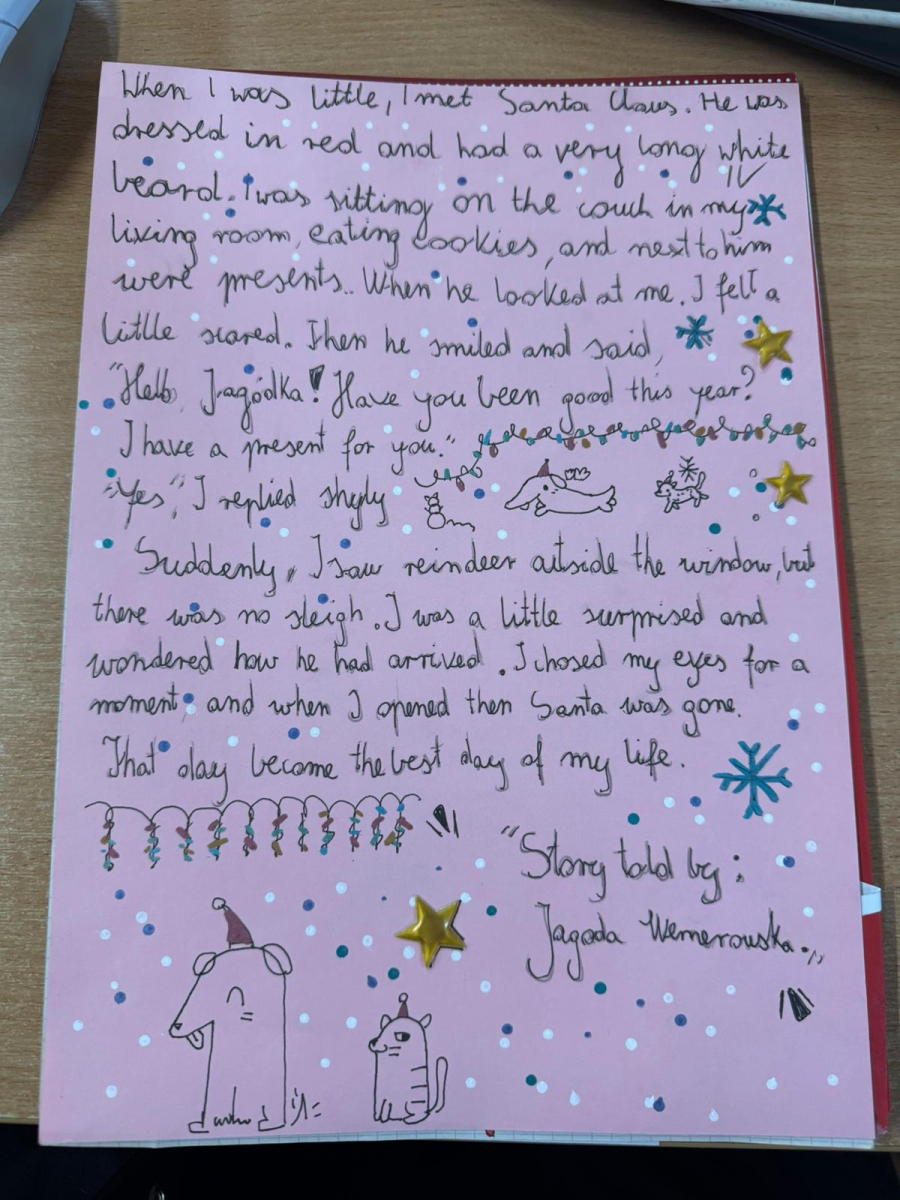 When I was little, I met Santa Claus. He was
dressed in red and had a very long white
beard. I was sitting on the couch in my
living room, eating cookies, and next to him
were presents.. When he looked at me. I felt a
little scared. Then he smiled and said,
"Hello, Jagódka! Have you been good this year?
I have a present for you."
"Yes", I replied shyly
Suddenly, I saw reindeer outside the window, but
there was no sleigh. I was a little surprised and
wondered how he had arrived. I closed my eyes for a
moment, and when I opened then Santa was gone.
That day become the best day of my life.
"Story told by:
Jagoda Wernerowska."